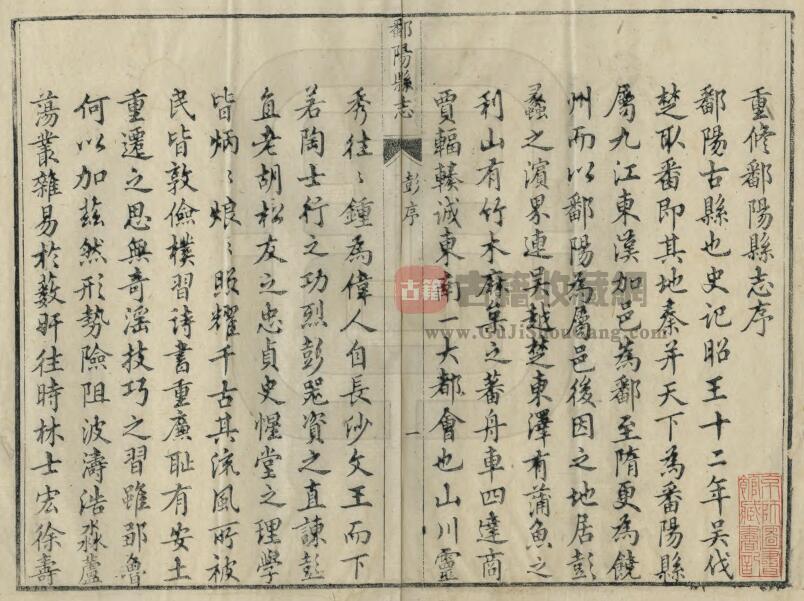 重修鄱陽縣志序
鄱陽古縣也史記昭王十二年吴伐
楚取番即其地秦并天下為番陽縣
屬九江東漢加邑為鄱至隋更為饒
州而以鄱陽為屬邑後因之地居彭
蠡之濱界連吴越楚東澤有蒲魚之
利山有竹木麻枲之蕃舟車四達商
賈輻輳诚東南一大都會也山川靈
鄱陽縣志
彭序
一
秀往〻鍾為偉人自長沙文王而下
若陶士行之功烈彭器資之直諫彭
直老胡松友之忠貞史惺堂之理學
皆炳〻烺〻照耀千古其流風所被
民皆敦儉樸習詩書重廉耻有安土
重遷之思無奇滛技巧之習雖鄒魯
何以加兹然形勢險阻波濤浩淼蘆
蕩叢雜易於藪奸往時林士宏徐壽
古籍
古籍收藏网
www.GuJiShouCang.com